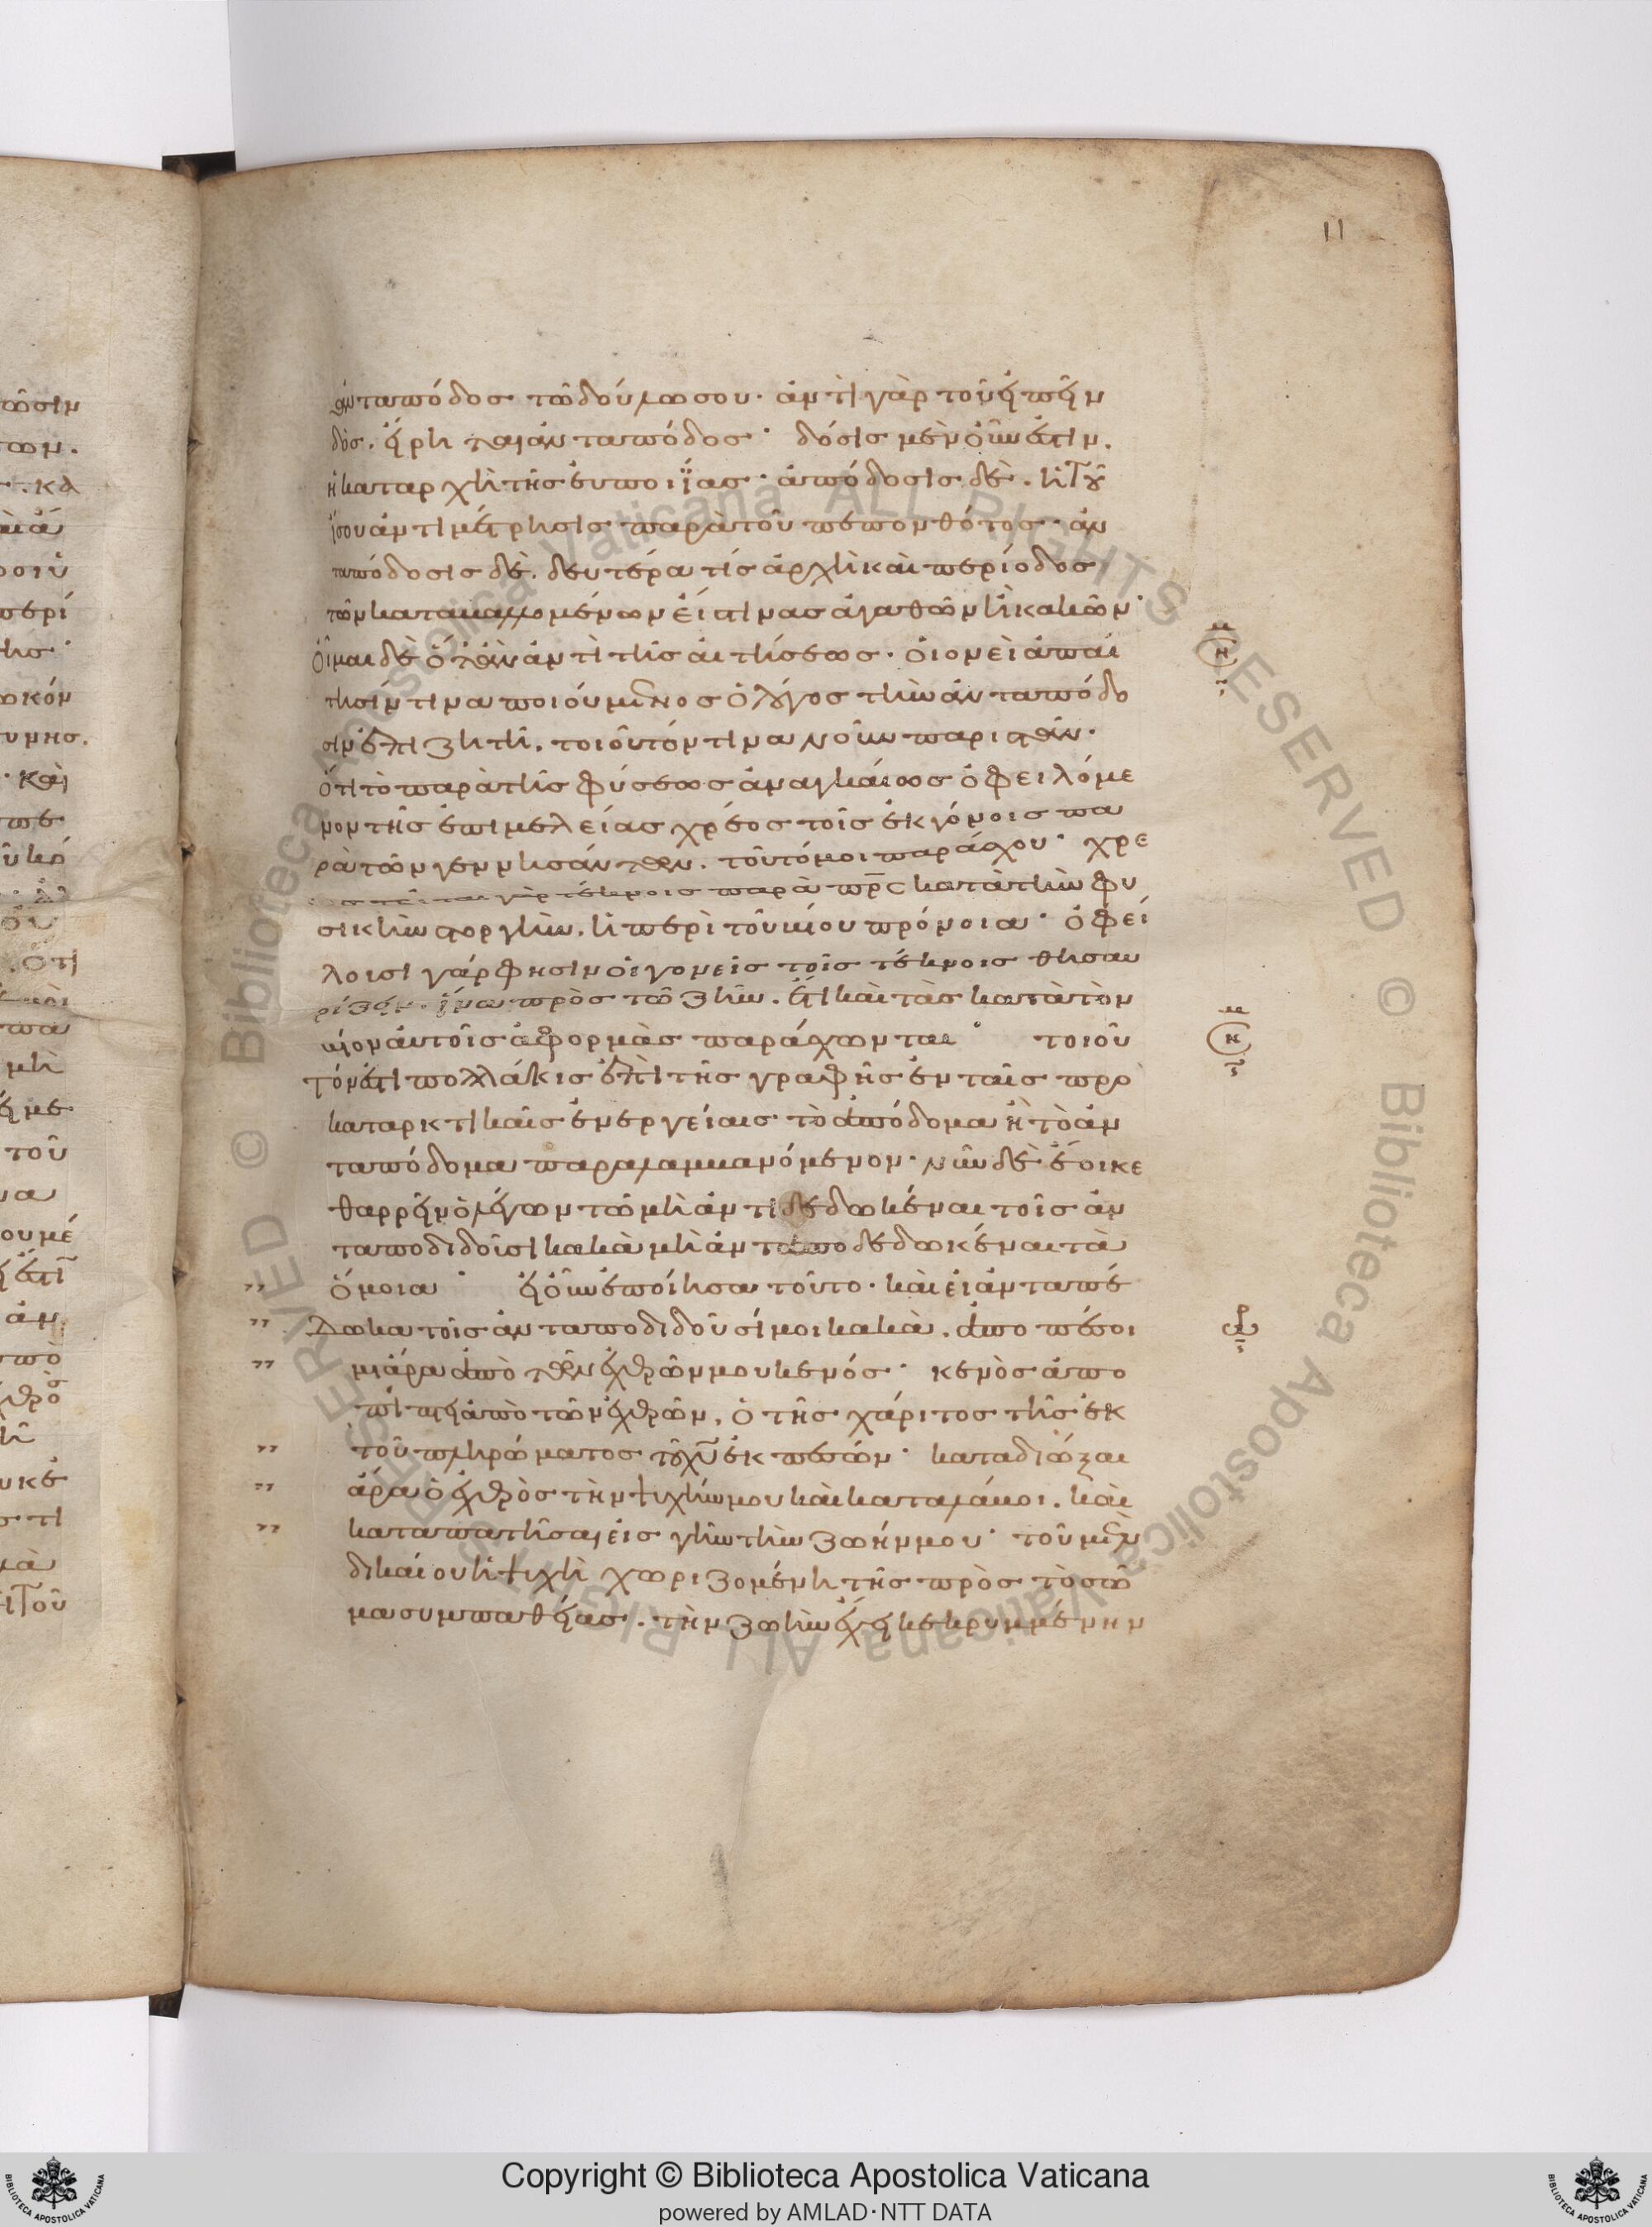 11
ἀνταπόδος τῶ δούλω σου· ἀντὶ γὰρ τοῦ εἰπεῖν
δὸς. εἴρηται ἀνταπόδος· δόσις μὲν οὖν ἐστιν.
ἡ καταρχὴ τῆς εὐποιΐας· ἀπόδοσις δὲ. ἡ τοῦ
ἴσου ἀντιμέτρησις παρὰ τοῦ πεπονθότος· ἀν
ταπόδοσις δὲ. δευτέρα τίς ἀρχὴ καὶ περίοδος
τῶν καταβαλλομένων εἴς τινας ἀγαθῶν ἢ κακῶν·
οἶμαι δὲ ὅταν ἀντὶ τῆς αἰτήσεως. οἱονεὶ ἀπαί
τησίν τινα ποιούμενος ὁ λόγος τὴν ἀνταπόδο
σιν ἐπιζητῆ. τοιοῦτόν τινα νοῦν παριστᾶν·
ὅτι τὸ παρὰ τῆς φύσεως ἀναγκαίως ὀφειλόμε
νον τῆς ἐπιμελείας χρέος τοῖς ἐκγόνοις πα
ρὰ τῶν γεννησάντων. τοῦτό μοι παράσχου· χρε
ωστεῖται γὰρ τέκνοις παρὰ πρς κατὰ τὴν φυ
σικὴν στοργὴν. ἡ περὶ τοῦ βίου πρόνοια· ὀφεί
λουσι γάρ φησιν οἱ γονεῖς τοῖς τέκνοις θησαυ
ρίζειν. ἵνα πρὸς τῶ ζῆν. ἔτι καὶ τὰς κατὰ τὸν
βίον αὐτοῖς ἀφορμὰς παράσχωνται· τοιοῦ
τόν ἐστι πολλάκις ἐπὶ τῆς γραφῆς ἐν ταῖς προ
καταρκτικαῖς ἐνεργείαις τὸ ἀπόδομα ἢ τὸ ἀν
ταπόδομα παραλαμβανόμενον· νῦν δὲ ἔοικε
θαρρεῖν ὁ λέγων τῶ μὴ ἀντιδεδωκέναι τοῖς ἀν
ταποδιδοῦσι κακὰ μὴ ἀνταποδεδωκέναι τὰ
ὅμοια· εἰ οὖν ἐποίησα τοῦτο· καὶ εἰ ἀνταπέ
δωκα τοῖς ἀνταποδιδοῦσί μοι κακὰ. ἀποπέσοι
μι ἄρα ἀπὸ τῶν ἐχθρῶν μου κενός· κενὸς ἀπο
πίπτει ἀπὸ τῶν ἐχθρῶν. ὁ τῆς χάριτος τῆς ἐκ
τοῦ πληρώματος τοῦ χῦ ἐκπεσών· καταδιώξαι
ἄρα ὁ ἐχθρὸς τὴν ψυχήν μου καὶ καταλάβοι. καὶ
καταπατήσαι εἰς γῆν τὴν ζωήν μου· τοῦ μὲν
δικαίου ἡ ψυχὴ χωριζομένη τῆς πρὸς τὸ σῶ
μα συμπαθείας. τὴν ζωὴν ἔχει κεκρυμμένην
Copyright © Biblioteca Apostolica Vaticana
powered by AMLAD·NTT DATA